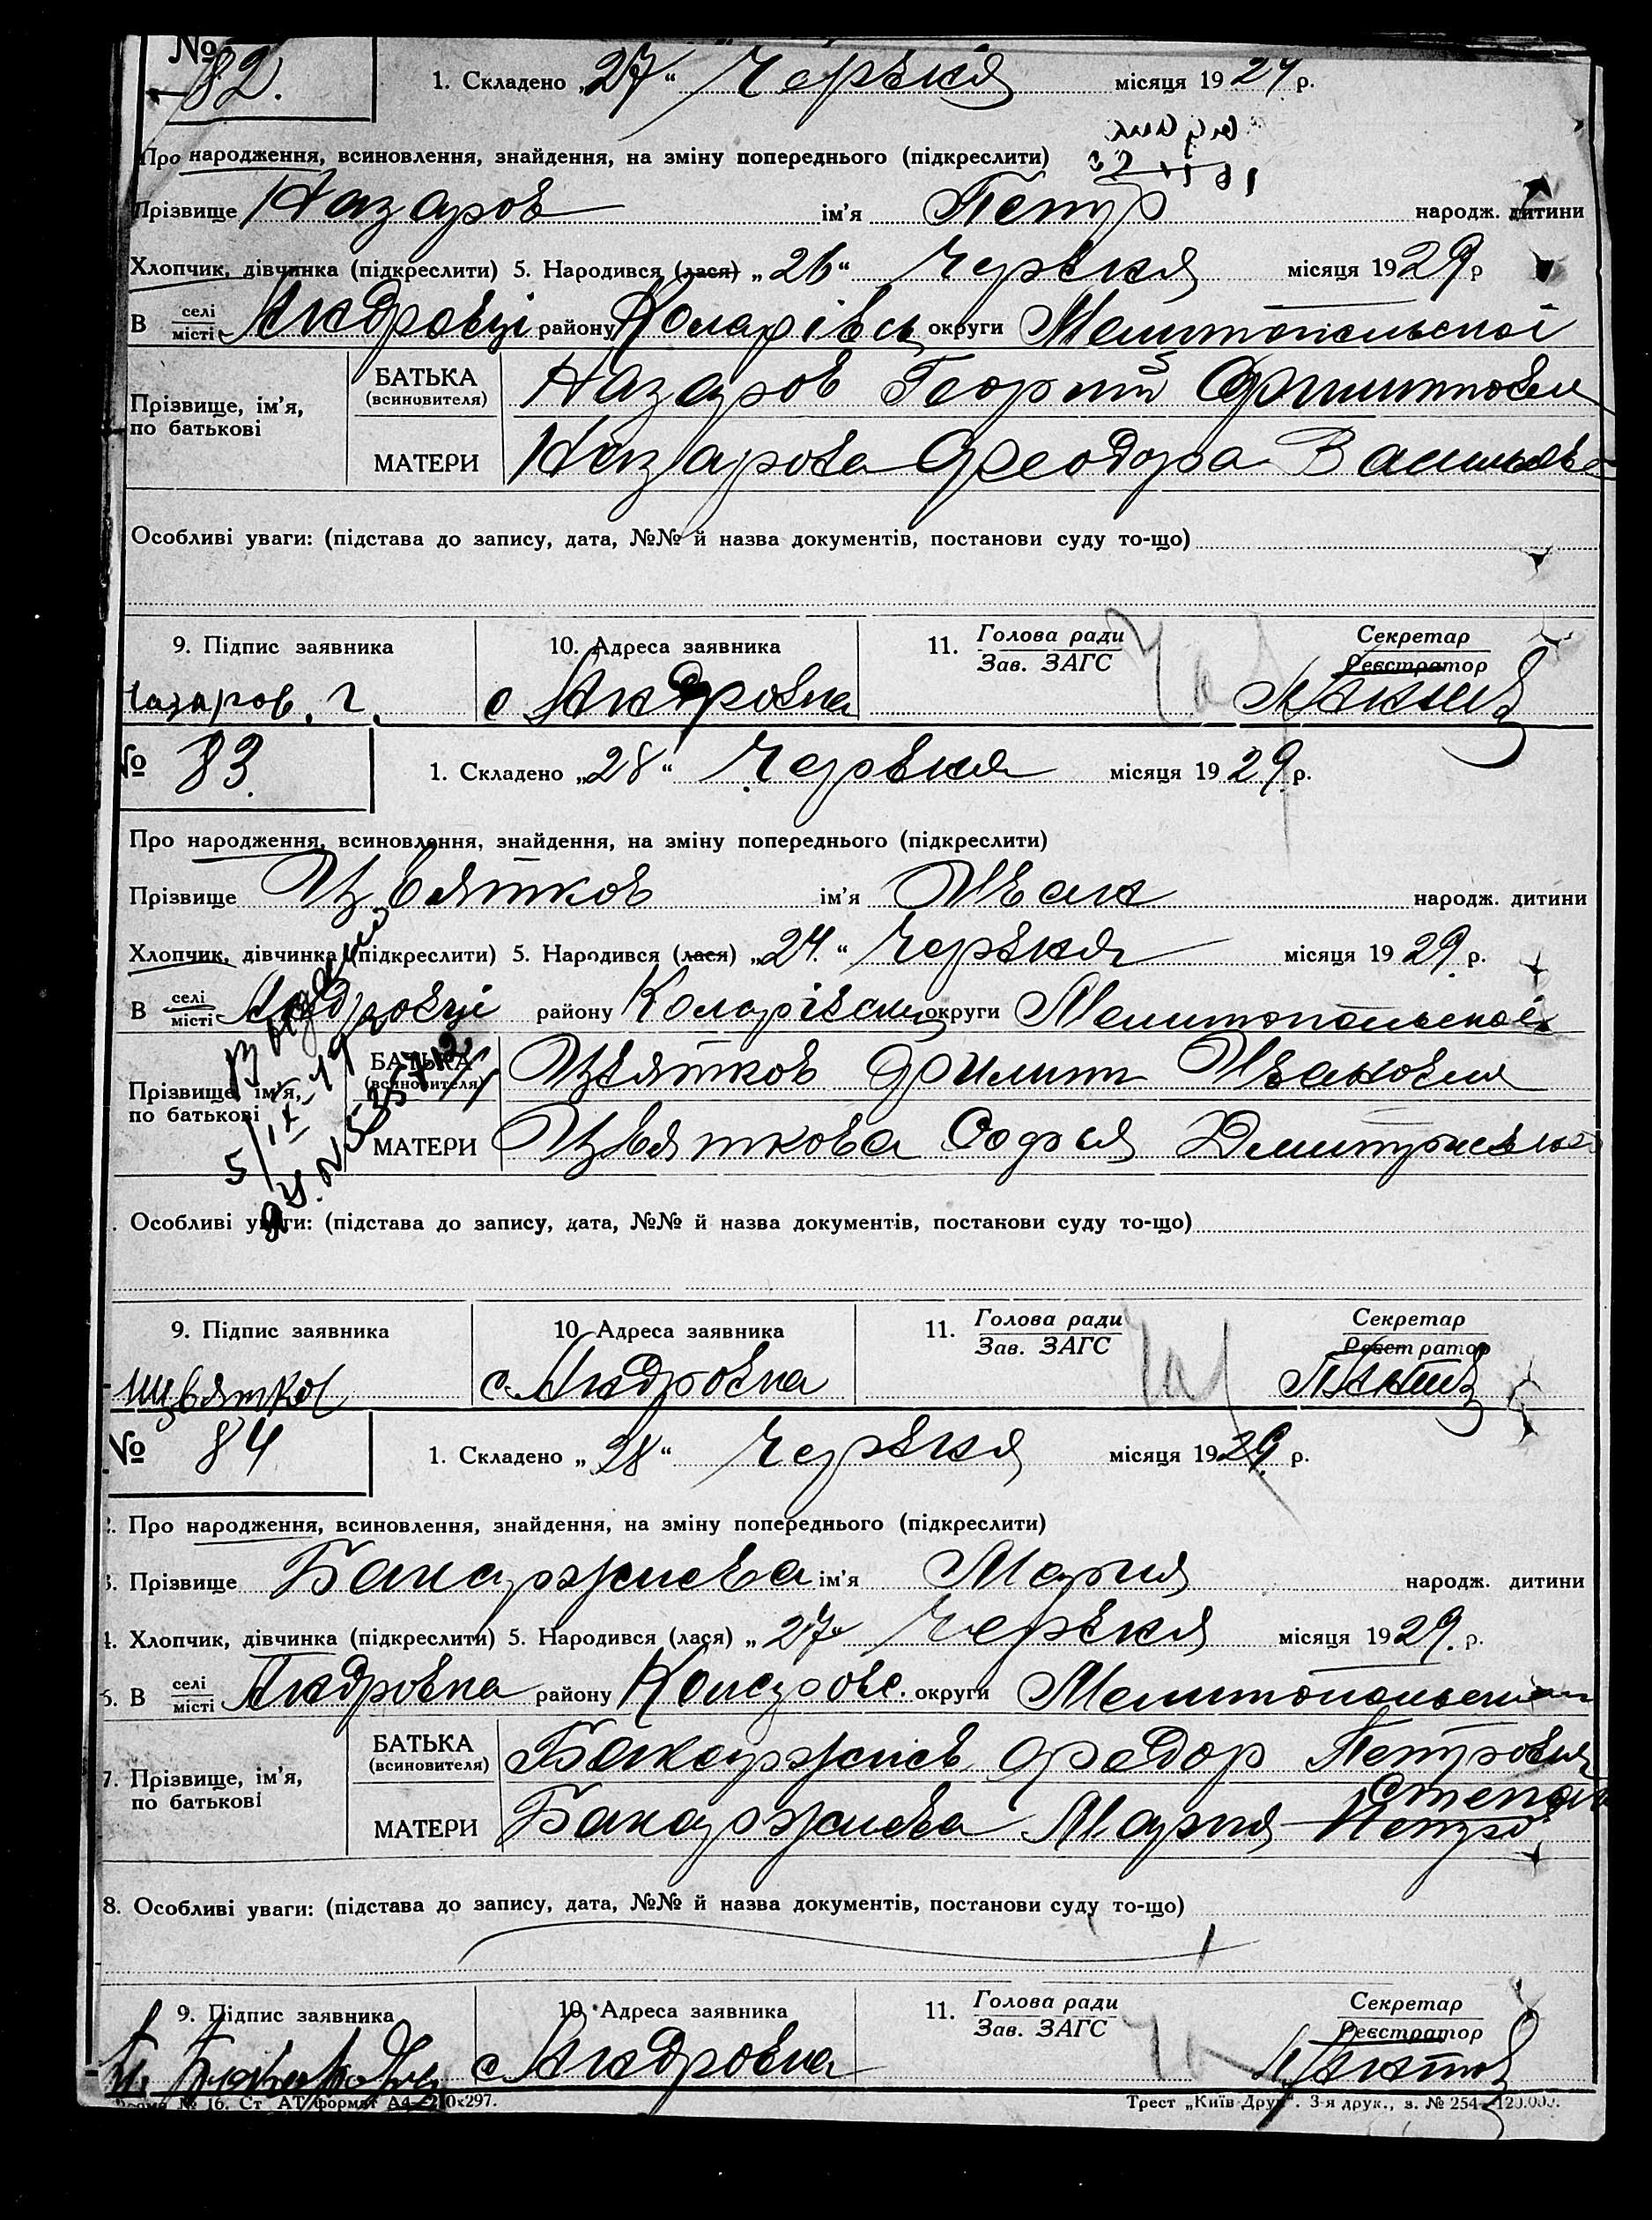 № 82.
1. Складено „27“ Червня місяця 1929 р.
Про народження, всиновлення, знайдення, на зміну попереднього (підкреслити)
Прізвище Назаров ім’я Петр народж. дитини
Хлопчик, дівчинка (підкреслити) 5. Народився (лася) „26“ Червня місяця 1929 р
В селі/місті Андровці району Коларівськ округи Мелитопольської
Прізвище, ім’я, по батькові
БАТЬКА (всиновителя) Назаров Георгий
МАТЕРИ Назарова Феодора Васильев
Особливі уваги: (підстава до запису, дата, №№ й назва документів, постанови суду то-що)
9. Підпис заявника 10. Адреса заявника 11. Голова ради Зав. ЗАГС Секретар Реєстратор
Назаров. Г. с Андровка
№ 83.
1. Складено „28“ Червня місяця 1929 р.
Про народження, всиновлення, знайдення, на зміну попереднього (підкреслити)
Прізвище Цвятков ім’я Иван народж. дитини
Хлопчик, дівчинка (підкреслити) 5. Народився (лася) „24.“ Червня місяця 1929. р.
В селі/місті Андровці району Коларівськ округи Мелитопольської
Прізвище, ім’я, по батькові
БАТЬКА (всиновителя) Цвятков Филипп Иванович
МАТЕРИ Цвяткова Софья Дмитриевна
Особливі уваги: (підстава до запису, дата, №№ й назва документів, постанови суду то-що)
9. Підпис заявника 10 Адреса заявника 11. Голова ради Зав. ЗАГС Секретар Реєстратор
Цвятков с. Андровка
№ 84
1. Складено „28“ Червня місяця 1929 р.
2. Про народження, всиновлення, знайдення, на зміну попереднього (підкреслити)
3. Прізвище Бакаржиева ім’я Мария народж. дитини
4. Хлопчик, дівчинка (підкреслити) 5. Народився (лася) „27“ Червня місяця 1929. р.
6. В селі/місті Андровка району Коларовс. округи
7. Прізвище, ім’я, по батькові
БАТЬКА (всиновителя) Бакаржиев Федор Петрович
Степан
МАТЕРИ Бакаржиева Мария Петро
8. Особливі уваги: (підстава до запису, дата, №№ й назва документів, постанови суду то-що)
9. Підпис заявника 10. Адреса заявника 11. Голова ради Зав. ЗАГС Секретар Реєстратор
с Андровка
Форма № 16. Ст АТ формат А4—210х297. Трест „Київ-Друк“. 3-я друк., з. № 254—120.000.